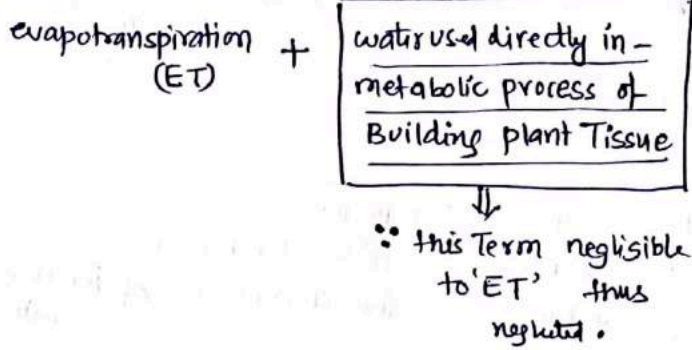 evapotranspiration + water used directly in -
(ET) metabolic process of
Building plant Tissue
⇓
∵ this Term neglisible
to 'ET' thus
neglected.